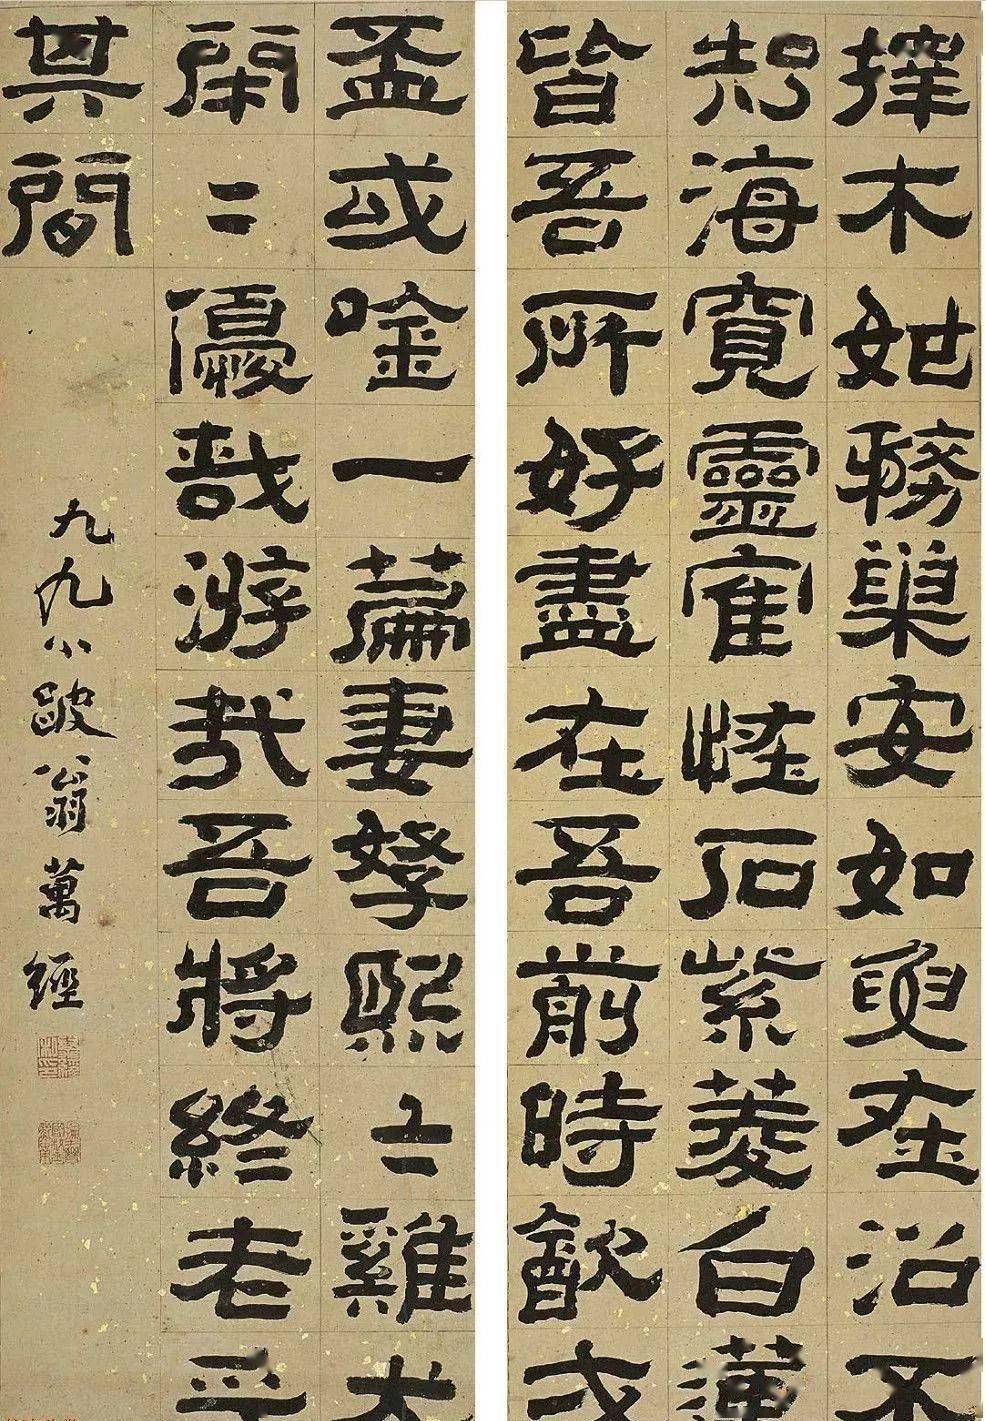 擇木姑務巢安如龜在沼不
知海寬靈寉怪石紫菱白蓮
皆吾所好盡在吾前時飲
盃或唫一篇妻孥熙〻雞犬
閑〻優哉游哉吾將終老乎
其間
九九小跛翁萬經